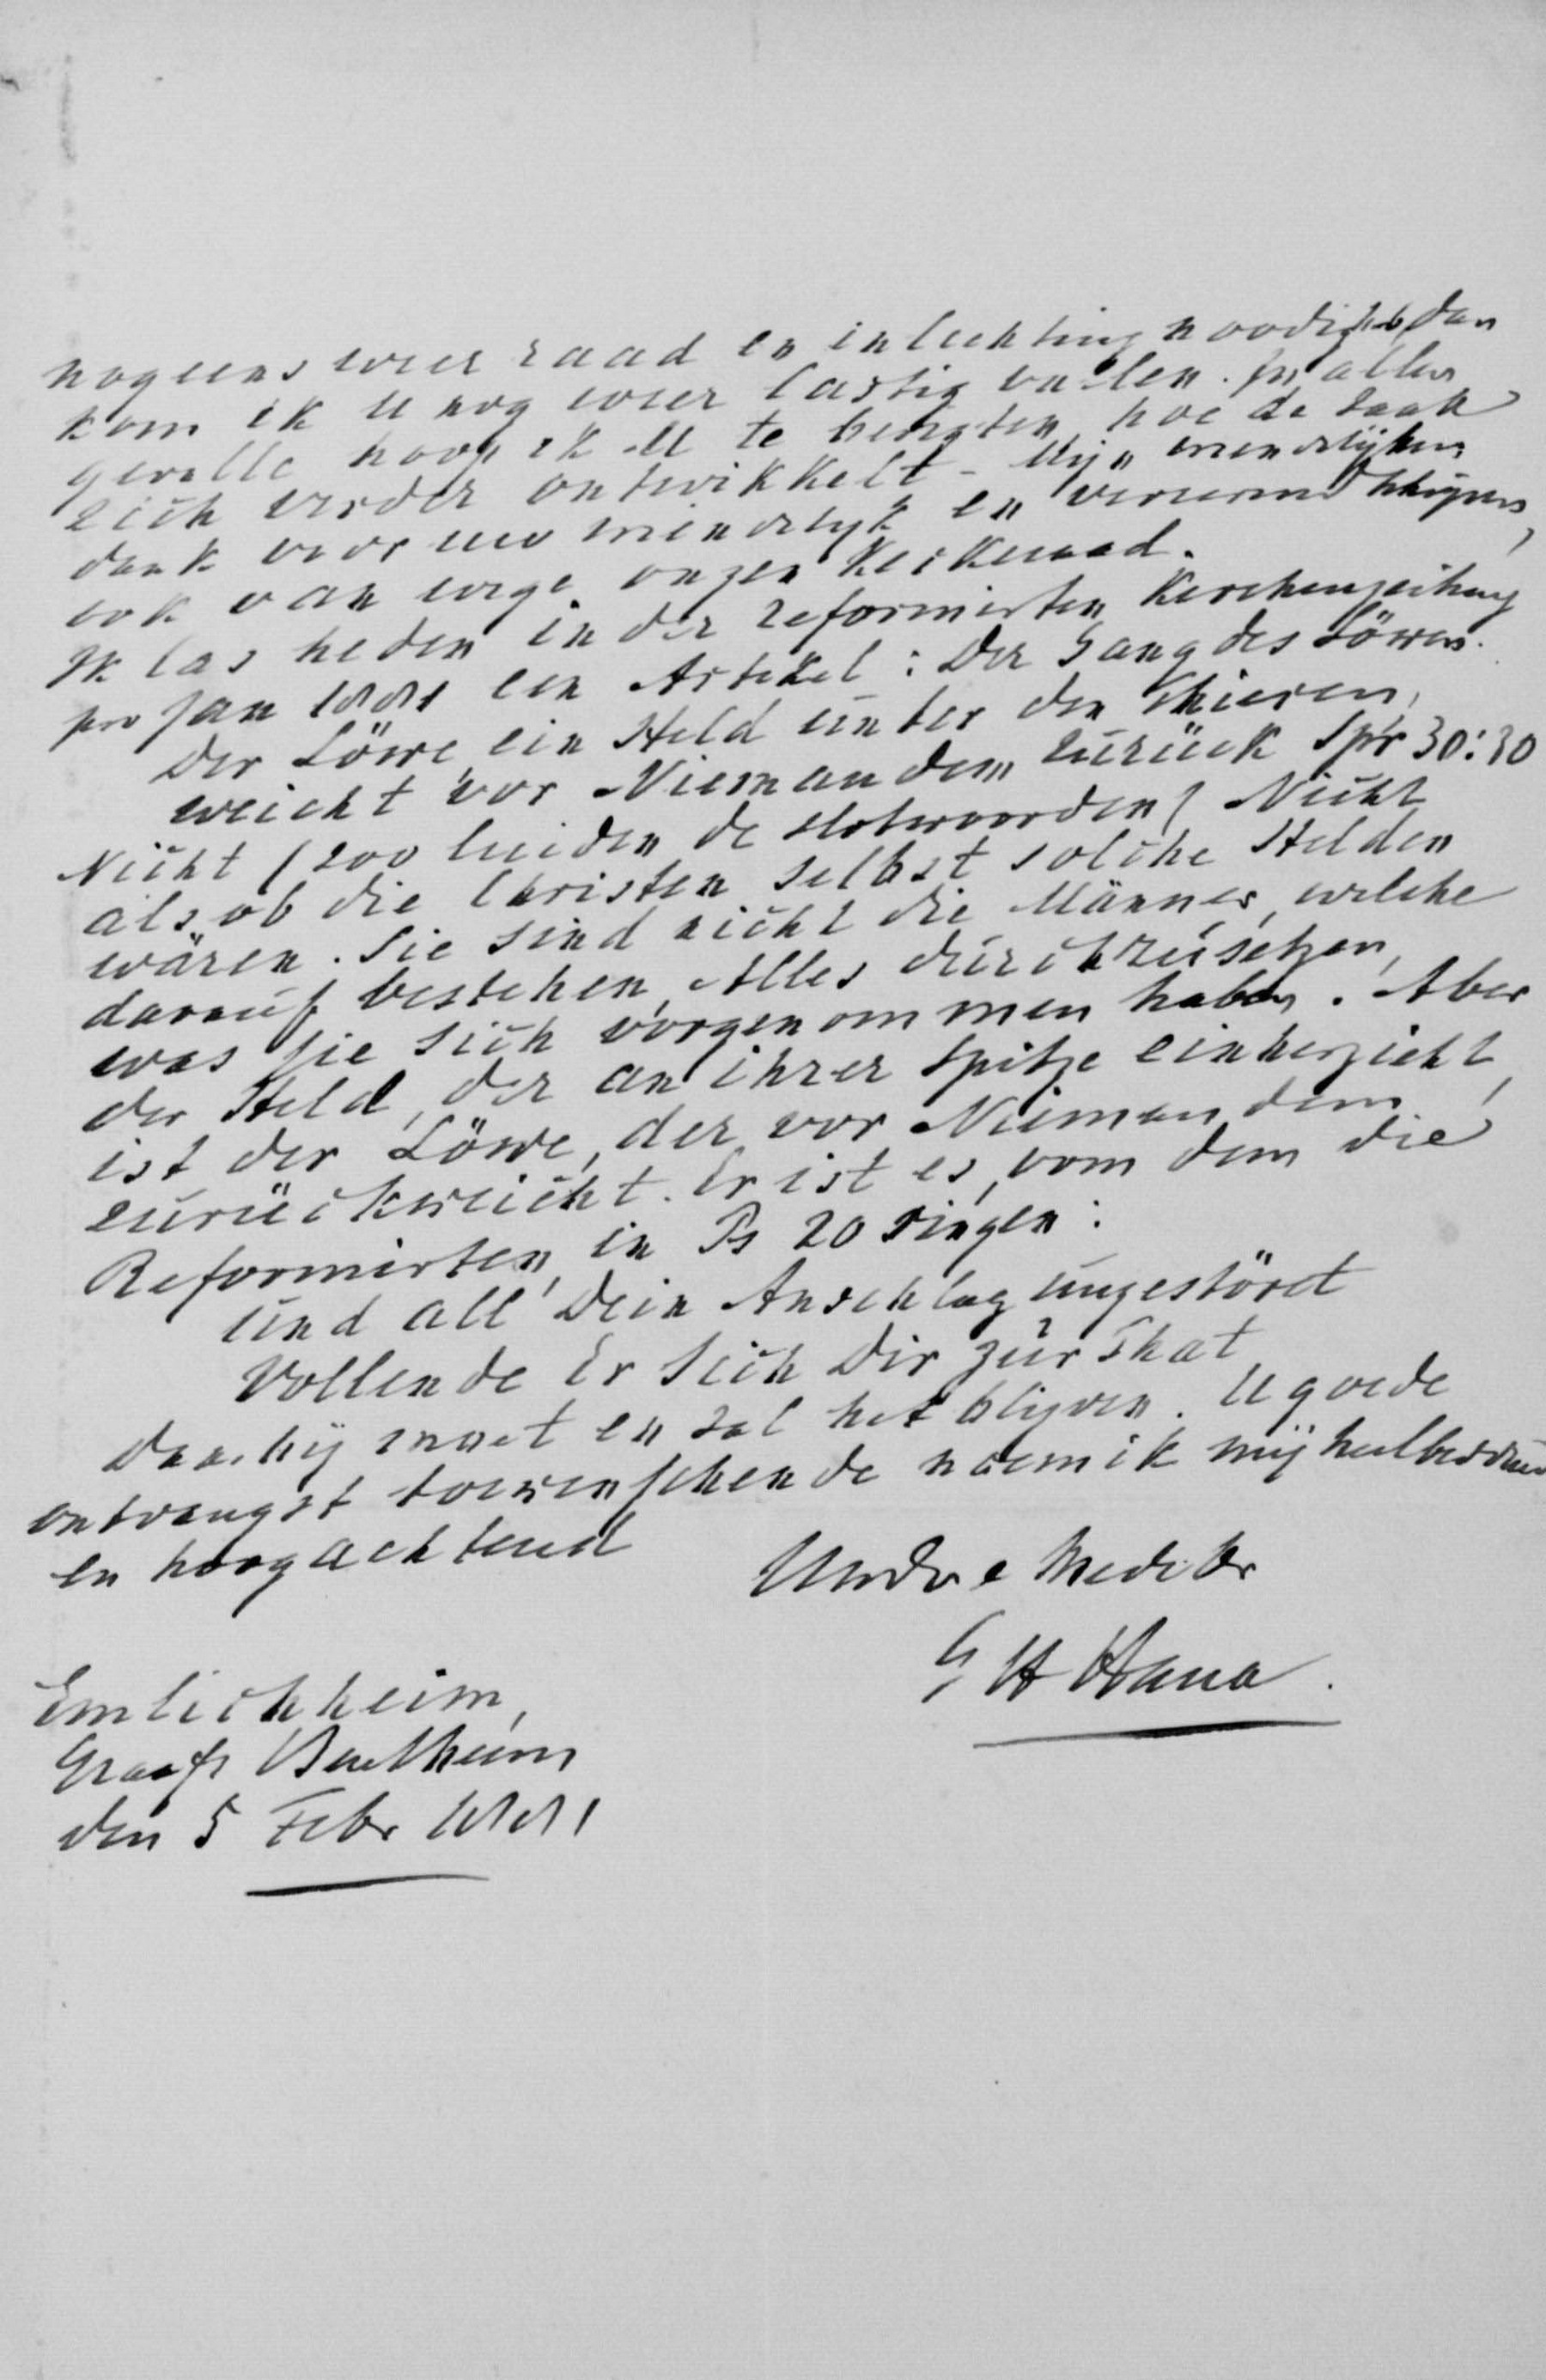 nogeens weer raad en inlichting noodig heb, dan
kom ik U nog weer lastig vallen. In allen
gevalle hoop ik U te berigten hoe de zaak
zich verder ontwikkelt - Mijn vriendelijken
dank voor uw vriendelijk en
ook van wege onzen Kerkeraad.
Ik las heden in der reformirten Kirchenzeitung
pro Jan 1881 een Artikel: Der Gang des Löwen.
Der Löwe, ein Held unter den Thieren,
weicht vor Niemandem zurück Spr 30:30
Nicht (zoo luiden de slotwoorden) Nicht
als ob die Christen selbst solche Helden
wären. Sie sind nicht die Männer, welche
darauf bestehen, Alles durchzusetzen,
was sie sich vorgenommen haben. Aber
der Held, der an ihrer Spitze einherzieht,
ist der Löwe, der vor Niemandem
zurückweicht. Er ist es, vom dem die
Reformirten in Ps 20 singen:
und all' Dein Anschlag ungestört
Vollende Er Sich Dir zur That
Daarbij moet en zal het blijven. U goede
ontvangst toewenschende noem ik mij heilbiddend
en hoogachtend
UwdW e Mede br
G H Hana.
Emlichheim,
Graafs Bentheim
den 5 Febr 1881